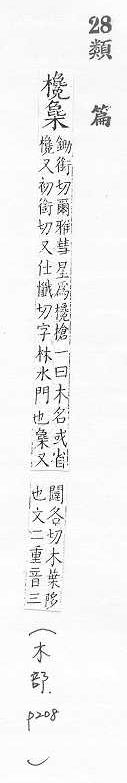 28
類篇
欃
鋤銜切爾雅彗星爲欃槍一曰木名或省
欃又初銜切又仕懺切字林水門也又
闥各切木葉陊
也文二重音三
(木部. p208)